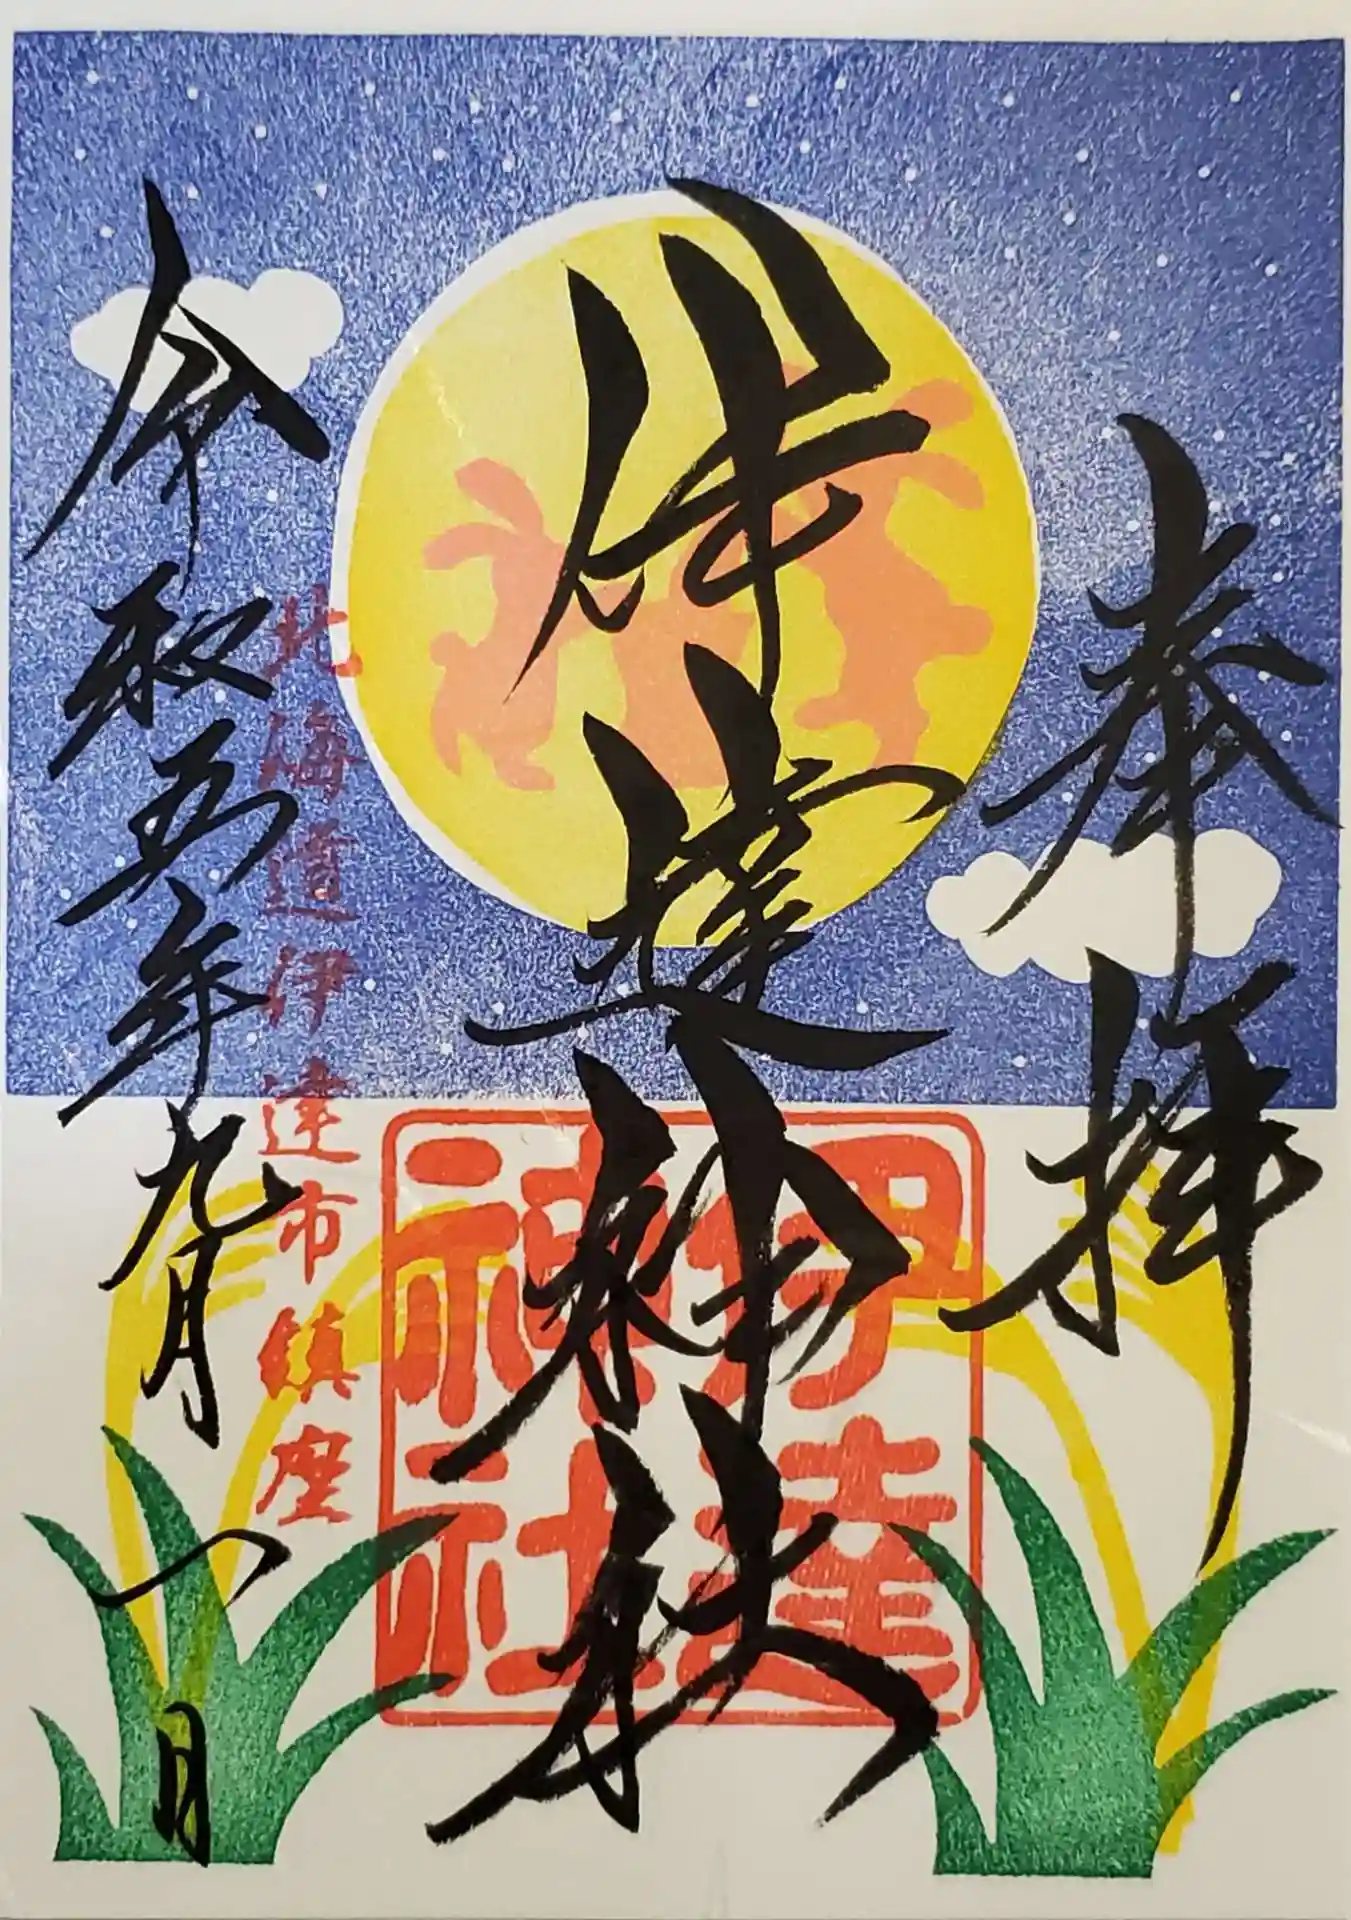 奉拝
伊達神社
伊達
神社
北海道伊達市鎮座
令和五年九月一日